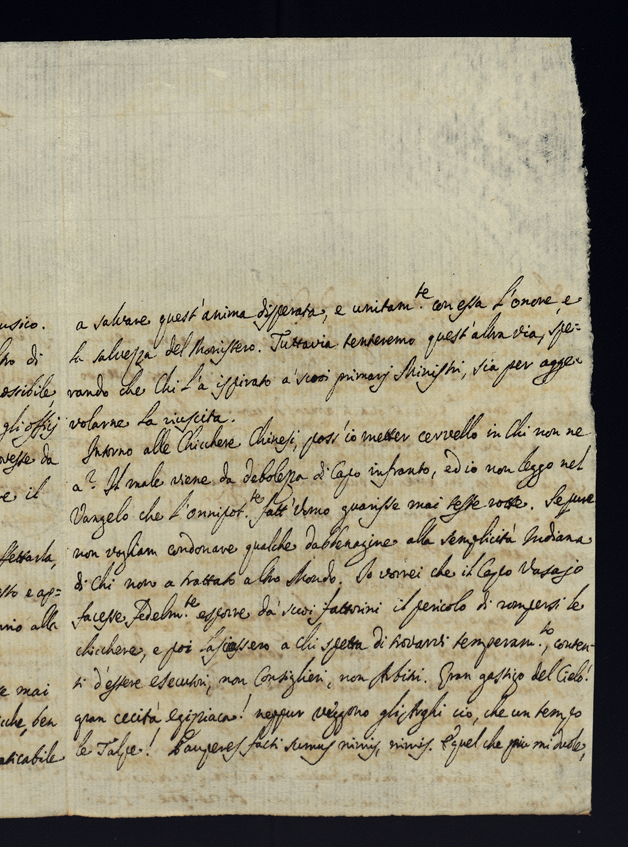 usico.
tro di
ossibile
gli offizj
vesse da
e il
ffettarla,
sto e ap=
ano alla
e mai
che, ben
aticabile
a salvare quest'anima disperata, e unitam.te con essa l'onore, e
la salvezza del Monistero. Tuttavia tenteremo quest'altra via, spe=
rando che Chi l'à ispirato a' suoi primarj Ministri, sia per agge=
volarne la riuscita.
Intorno alle Chicchere Chinesi, poss'io metter cervello in Chi non ne
a? Il male viene da debolezza di Capo infranto, ed io non leggo nel
Vangelo che l'Onnipot.te fatt'Uomo guarisse mai teste rotte. Se pure
non vogliam condonare qualche dabbenagine alla semplicità Indiana
di Chi non a trattato altro Mondo. Io vorrei che il Capo Vasajo
facesse fedelm.te esporre da' suoi fattorini il pericolo di rompersi le
chicchere, e poi lasciassero a Chi spetta di trovarvi temperam.to, conten=
ti d'essere esecutori, non Consiglieri, non Arbitri. Gran gastigo del Cielo!
gran cecità egiziaca! neppur veggono gli Arghi ciò, che un tempo
le Talpe! Pauperes facti sumus nimis, nimis. E quel che più mi duole,